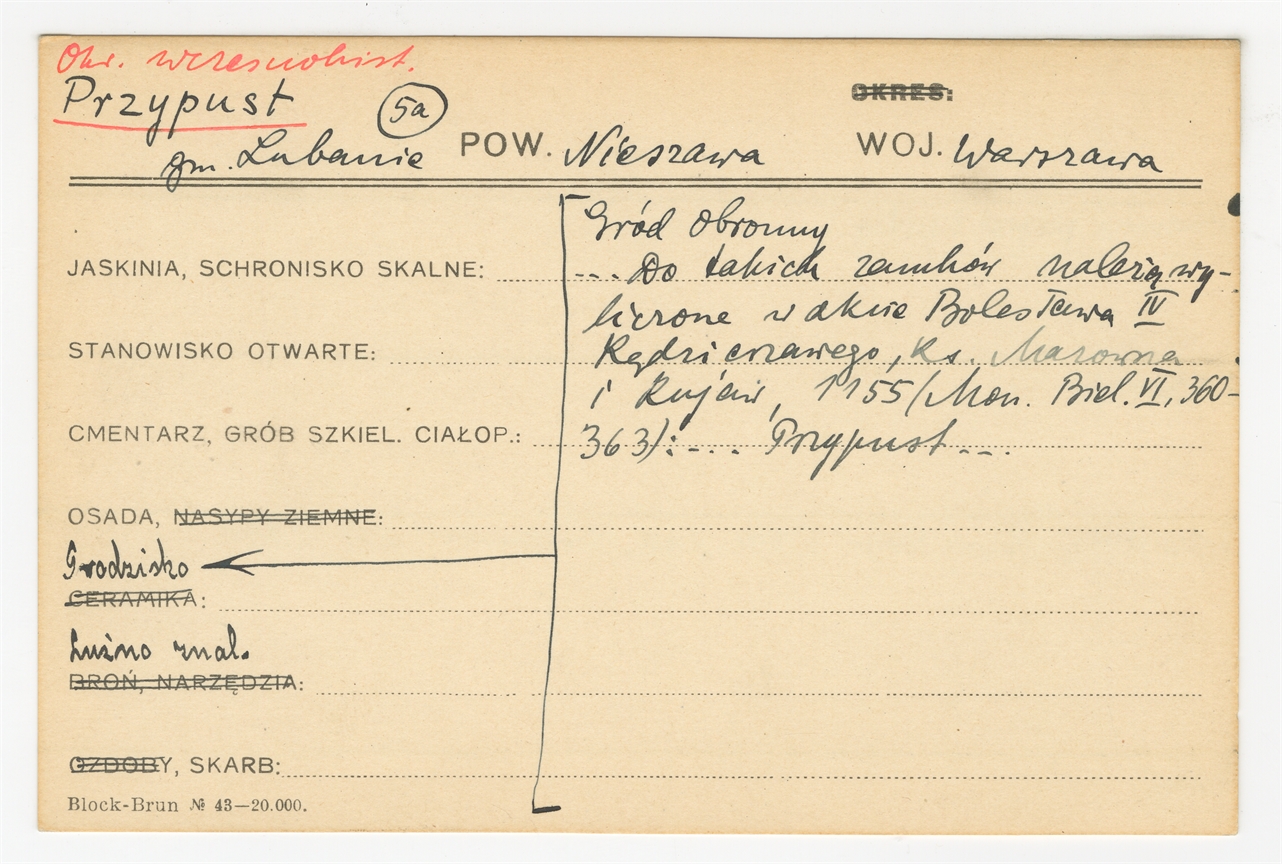 Okr. wczesnohist.
Przypust
5a
OKRES:
gm. Lubanie POW. Nieszawa WOJ. Warszawa
Gród obronny
JASKINIA, SCHRONISKO SKALNE: ... Do takich zamków należą wy-
liczone w akcie Bolesława IV
STANOWISKO OTWARTE: Kędzierzawego, ks. Mazowsza
i Kujaw, 1155/Mon. Biel. VI, 360-
CMENTARZ, GRÓB SZKIEL. CIAŁOP.: 363): ... Przypust ...
OSADA, NASYPY ZIEMNE:
Grodzisko
CERAMIKA:
Luźno znal.
BROŃ, NARZĘDZIA:
OZDOBY, SKARB:
Block-Brun № 43—20.000.